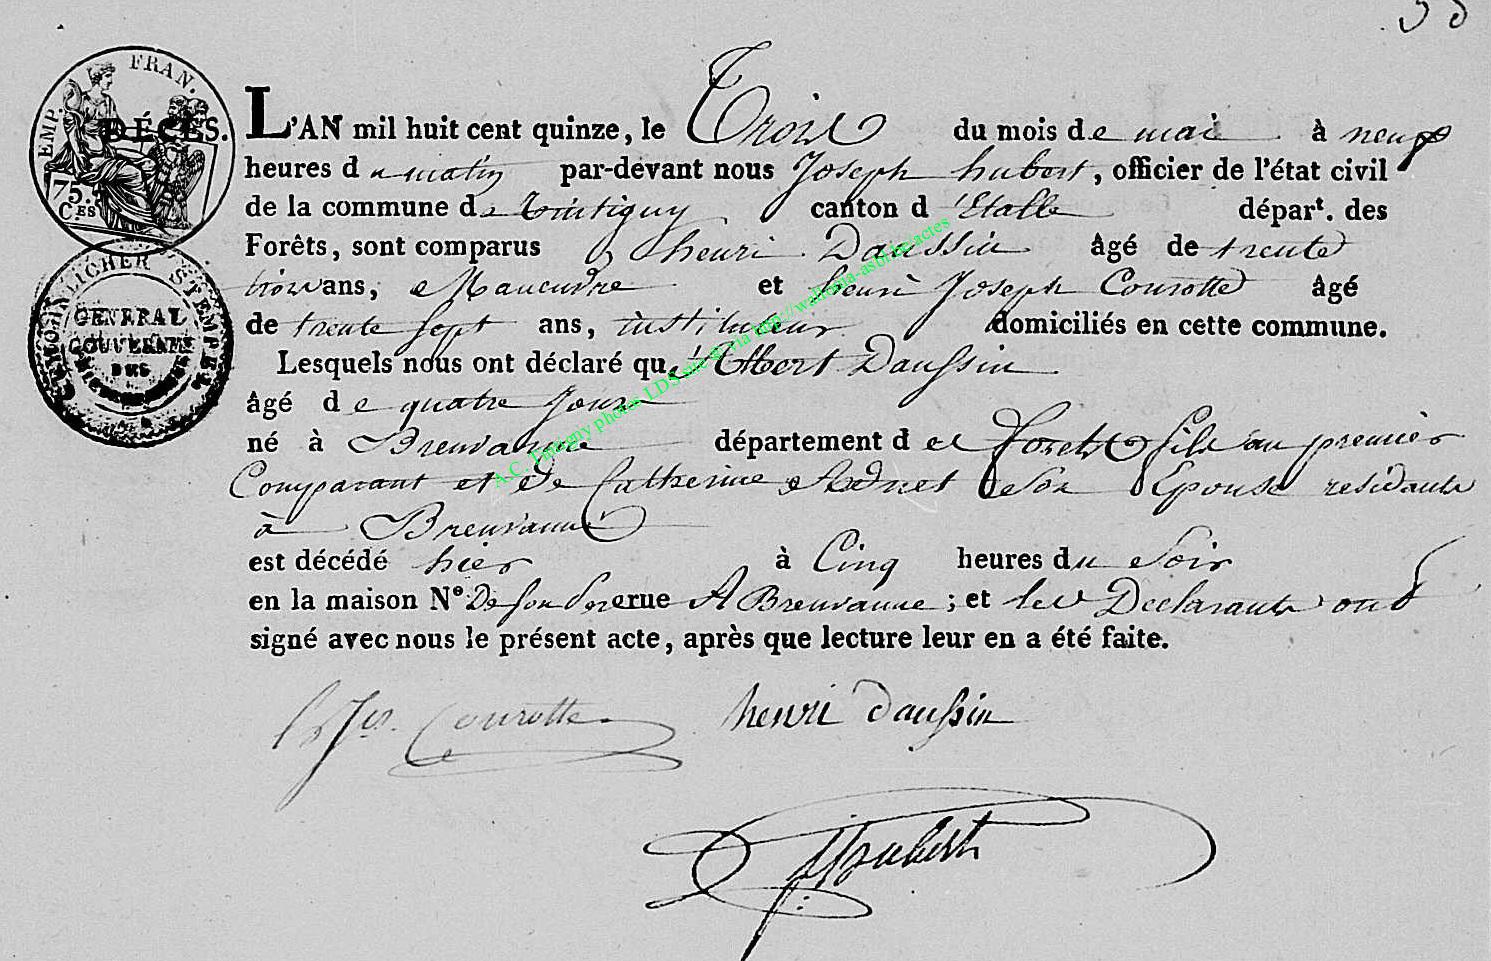 38
EMP. FRAN.
75. C.ES
DÉCÈS.
GENERAL
GOUVERNE
DES
L'AN mil huit cent quinze, le Trois du mois de mai à neuf
heures du matin par-devant nous Joseph hubert, officier de l'état civil
de la commune de Tintigny canton d'Etalle départ. des
Forêts, sont comparus henri Daussin âgé de trente
trois ans, Maneuvre et henri Joseph Courotte âgé
de trente sept ans, instituteur domiciliés en cette commune.
Lesquels nous ont déclaré que Daussin
âgé de quatre jours
né à Breuvanne département des forets fils au premier
Comparant et de Catherine Adnet son Epouse residante
à Breuvanne
est décédé hier à Cinq heures du Soir
en la maison N° De son Pere rue A Breuvanne ; et les Declarants ont
signé avec nous le présent acte, après que lecture leur en a été faite.
Courotte henri daussin
hubert
A.C. Tintigny photos LDS site & via http://wallonia-asbl.be/actes